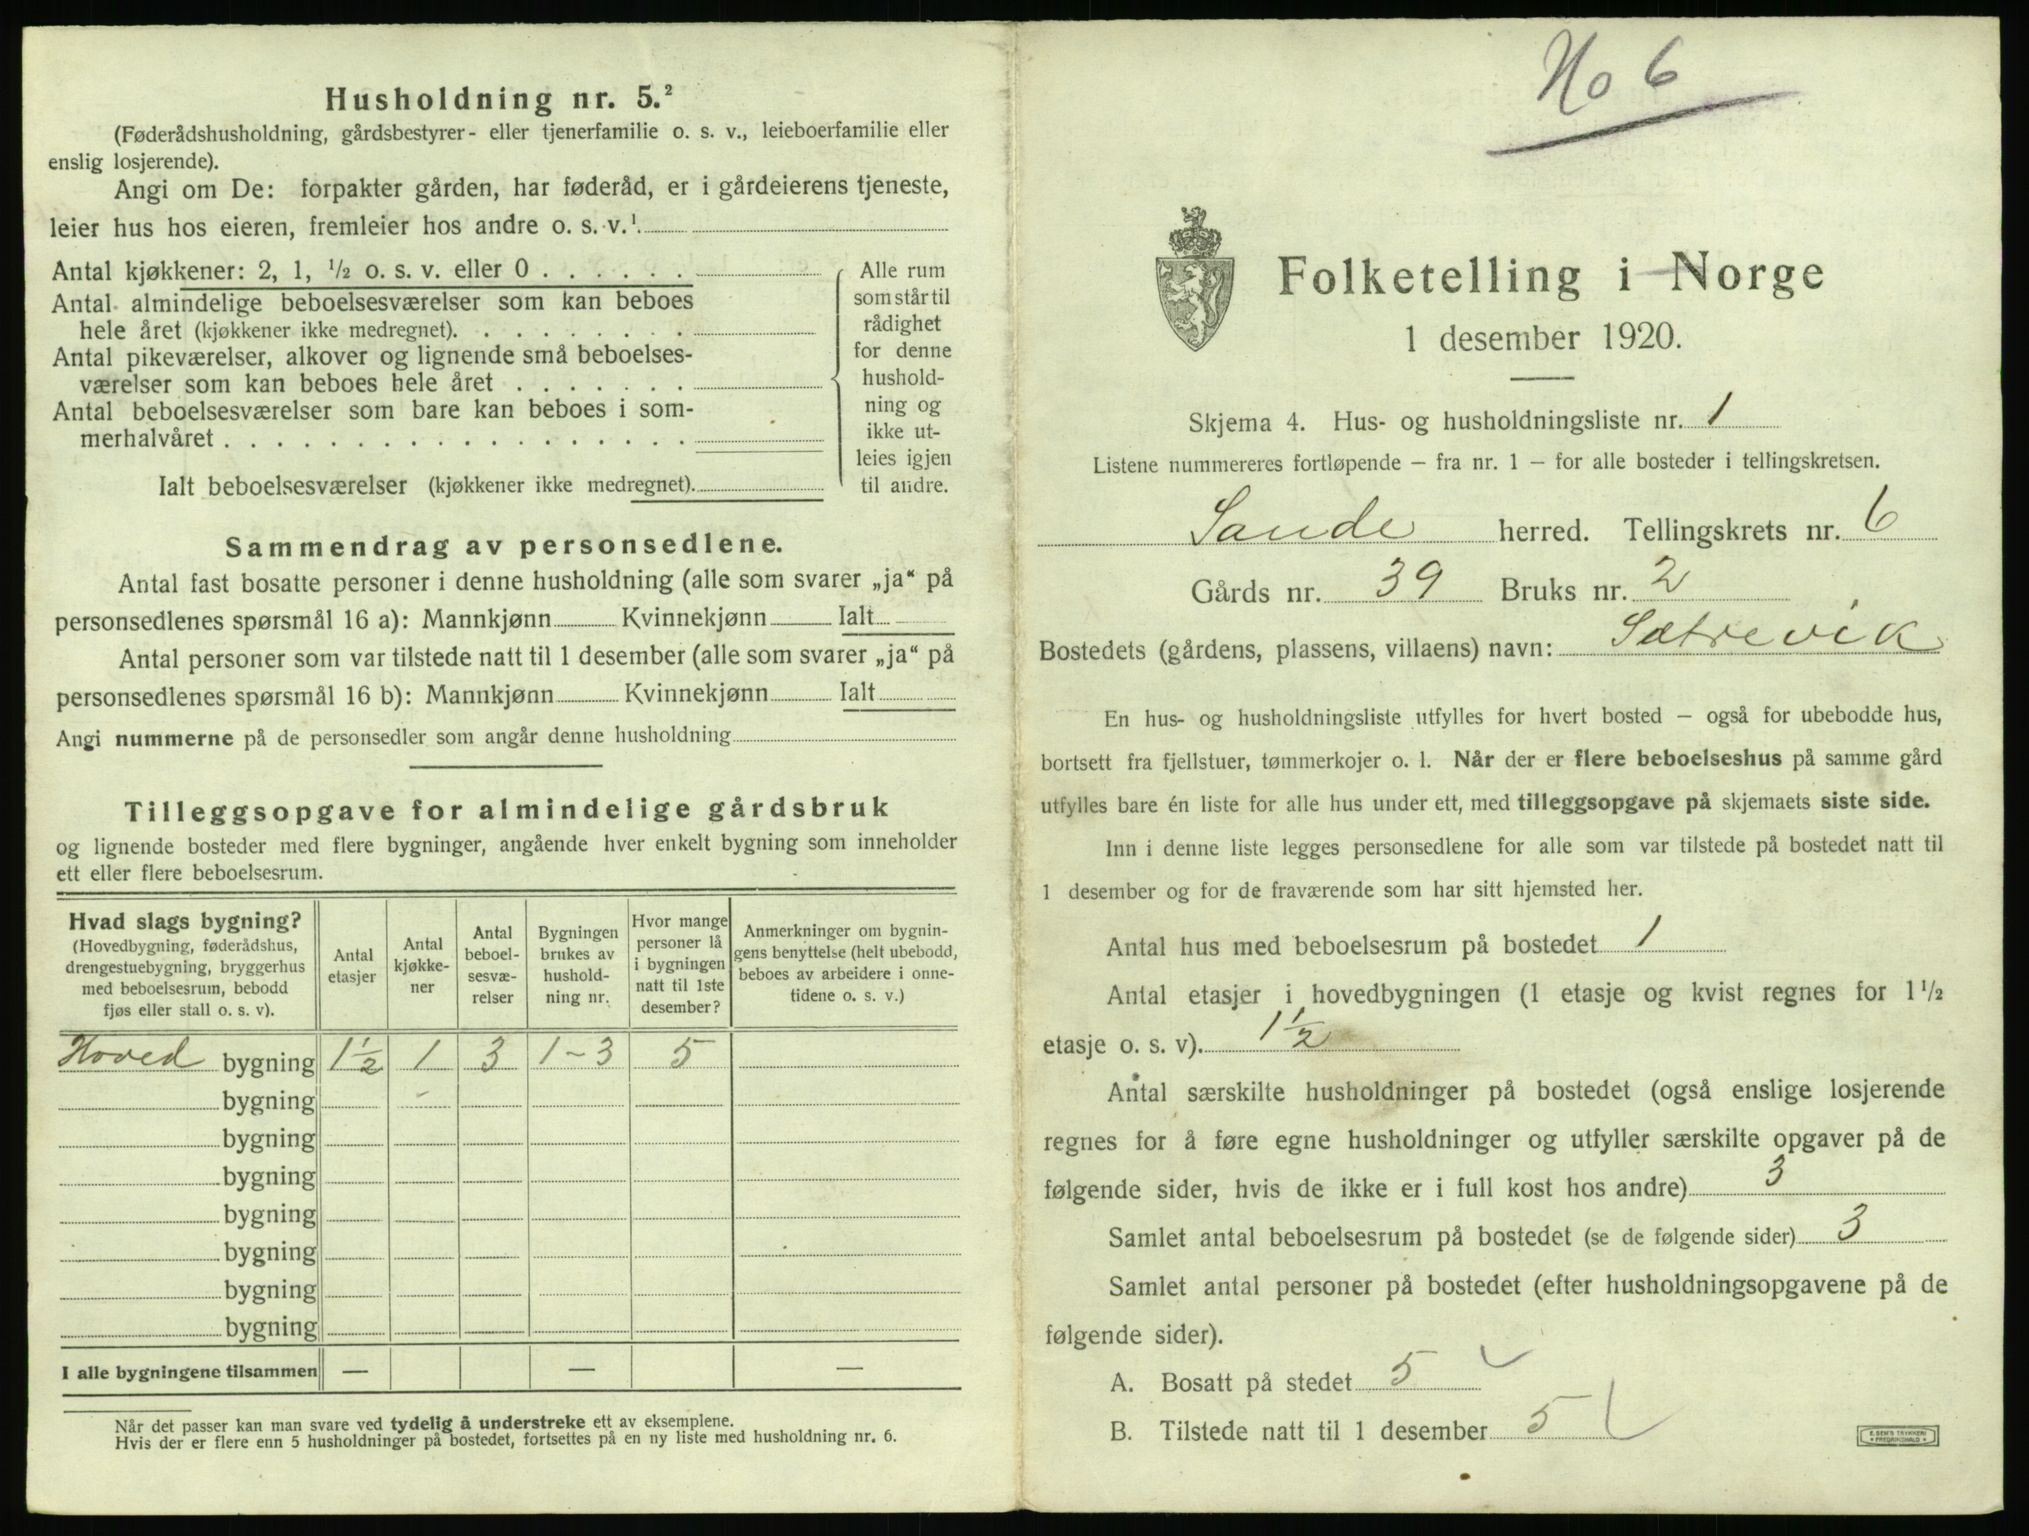 Husholdning nr. 5.²
(Føderådshusholdning, gårdsbestyrer- eller tjenerfamilie o. s. v., leieboerfamilie eller
enslig losjerende).
Angi om De: forpakter gården, har føderåd, er i gårdeierens tjeneste,
leier hus hos eieren, fremleier hos andre o. s. v.¹
Antal kjøkkener: 2, 1, ½ o. s. v. eller 0 . . . . . .
Antal almindelige beboelsesværelser som kan beboes
hele året (kjøkkener ikke medregnet). . . . . . . . .
Antal pikeværelser, alkover og lignende små beboelses-
værelser som kan beboes hele året . . . . . . .
Antal beboelsesværelser som bare kan beboes i som-
merhalvåret . . . . . . . . . . . . . . . . . .
Ialt beboelsesværelser (kjøkkener ikke medregnet).
Alle rum
som står til
rådighet
for denne
hushold-
ning og
ikke ut-
leies igjen
til andre.
Sammendrag av personsedlene.
Antal fast bosatte personer i denne husholdning (alle som svarer „ja“ på
personsedlenes spørsmål 16 a): Mannkjønn Kvinnekjønn Ialt
Antal personer som var tilstede natt til 1 desember (alle som svarer „ja“ på
personsedlenes spørsmål 16 b): Mannkjønn Kvinnekjønn Ialt
Angi nummerne på de personsedler som angår denne husholdning
Tilleggsopgave for almindelige gårdsbruk
og lignende bosteder med flere bygninger, angående hver enkelt bygning som inneholder
ett eller flere beboelsesrum.
Hvad slags bygning?
(Hovedbygning, føderådshus,
drengestuebygning, bryggerhus
med beboelsesrum, bebodd
fjøs eller stall o. s. v).
Antal
etasjer
Antal
kjøkke-
ner
Antal
beboel-
sesvæ-
relser
Bygningen
brukes av
hushold-
ning nr.
Hvor mange
personer lå
i bygningen
natt til 1ste
desember?
Anmerkninger om bygnin-
gens benyttelse (helt ubebodd,
beboes av arbeidere i onne-
tidene o. s. v.)
Hoved bygning 1½ 1 3 1-3 5
bygning -
bygning
bygning
bygning
bygning
bygning
bygning
I alle bygningene tilsammen — — —
Når det passer kan man svare ved tydelig å understreke ett av eksemplene.
Hvis der er flere enn 5 husholdninger på bostedet, fortsettes på en ny liste med husholdning nr. 6.
No 6
Folketelling i Norge
1 desember 1920.
Skjema 4. Hus- og husholdningsliste nr. 1
Listene nummereres fortløpende – fra nr. 1 – for alle bosteder i tellingskretsen.
Sande herred. Tellingskrets nr. 6
Gårds nr. 39 Bruks nr. 2
Bostedets (gårdens, plassens, villaens) navn: Sætrevik
En hus- og husholdningsliste utfylles for hvert bosted – også for ubebodde hus,
bortsett fra fjellstuer, tømmerkojer o. l. Når der er flere beboelseshus på samme gård
utfylles bare én liste for alle hus under ett, med tilleggsopgave på skjemaets siste side.
Inn i denne liste legges personsedlene for alle som var tilstede på bostedet natt til
1 desember og for de fraværende som har sitt hjemsted her.
Antal hus med beboelsesrum på bostedet 1
Antal etasjer i hovedbygningen (1 etasje og kvist regnes for 1½
etasje o. s. v). 1½
Antal særskilte husholdninger på bostedet (også enslige losjerende
regnes for å føre egne husholdninger og utfyller særskilte opgaver på de
følgende sider, hvis de ikke er i full kost hos andre) 3
Samlet antal beboelsesrum på bostedet (se de følgende sider) 3
Samlet antal personer på bostedet (efter husholdningsopgavene på de
følgende sider).
A. Bosatt på stedet 5
B. Tilstede natt til 1 desember 5
E. SEM'S TRYKKERI
FREDRIKSHALD